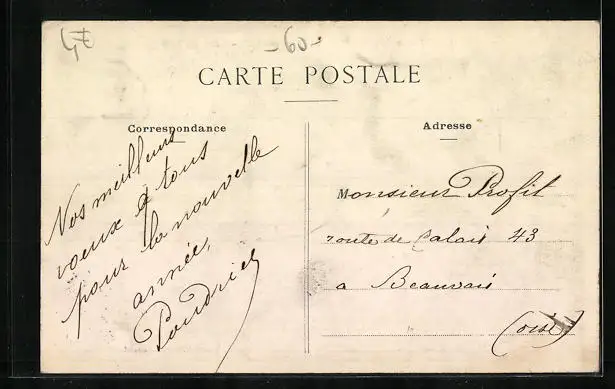 -60-
CARTE POSTALE
Correspondance
Nos meilleurs
voeux à tous
pour la nouvelle
année,
Adresse
Monsieur Profit
route de Calais 43
a Beauvais
(oise)